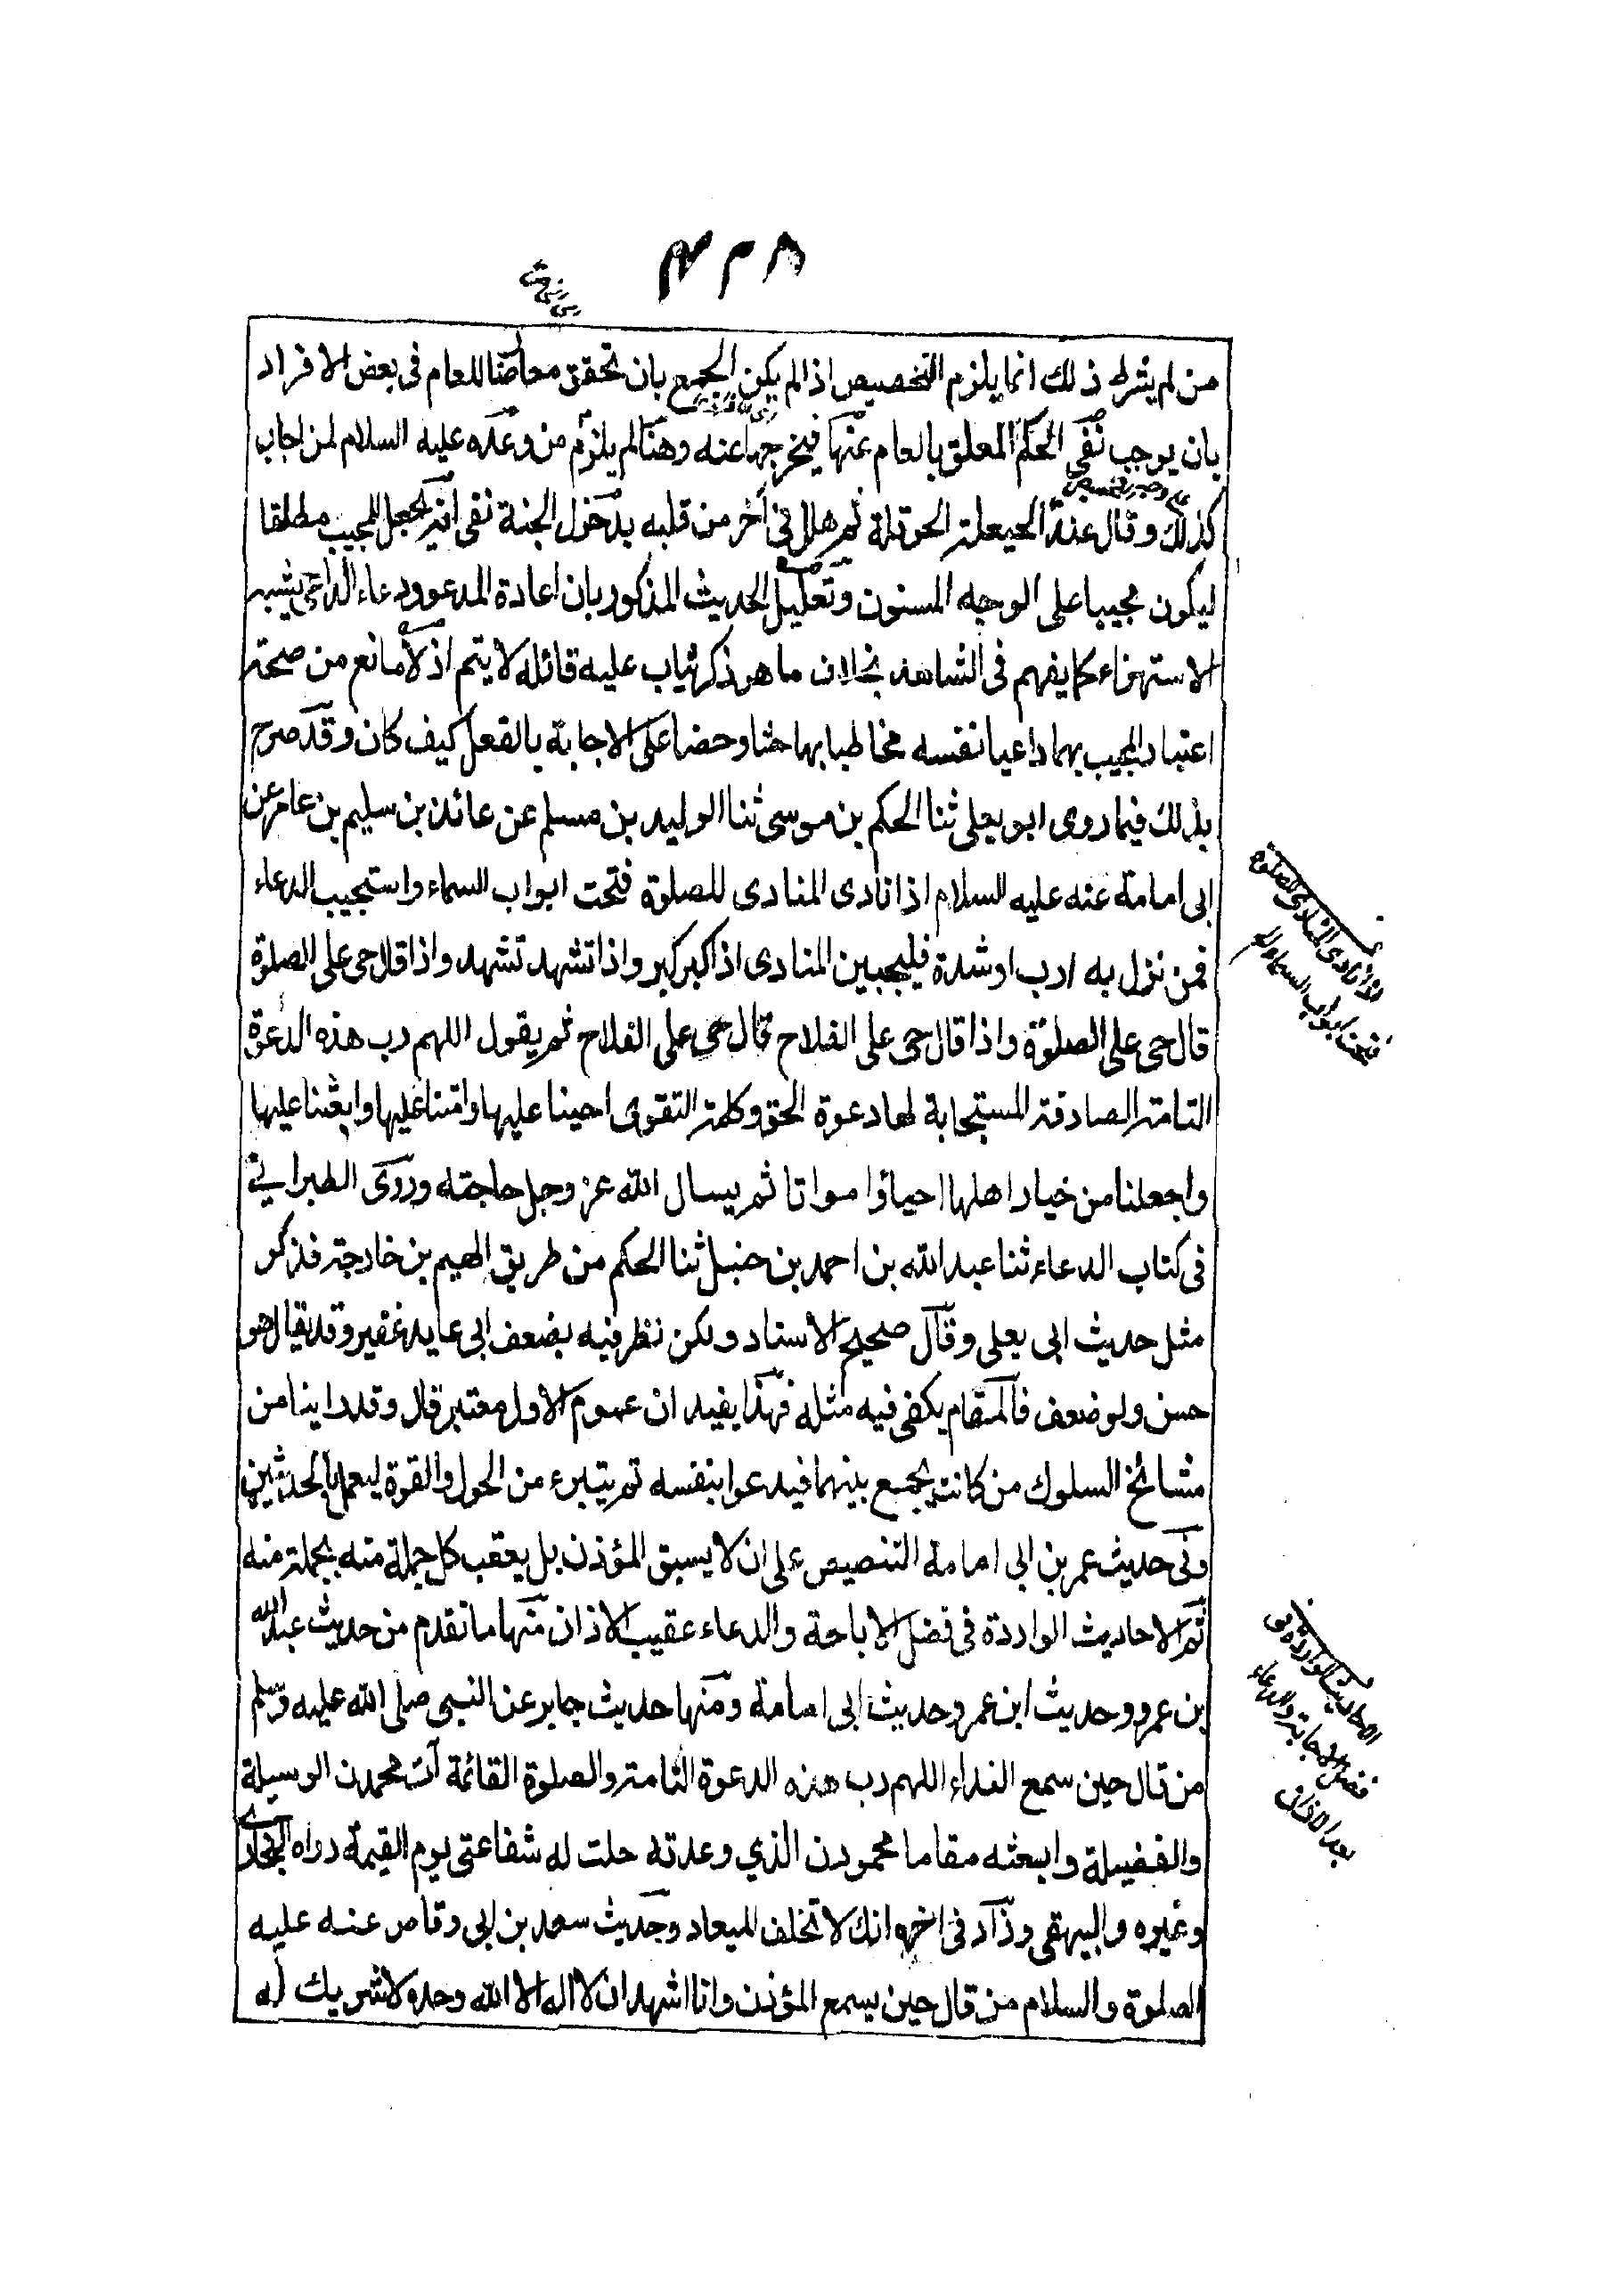 من لم يشرط ذلك انما يلزم التخصيص اذا لم يكن الجمع بان تحقق معارضا للعام فى بعض الافراد
بان يوجب نفى الحكم المعلق بالعام عنها فيخرجها عنه وهنا لم يلزم من وعده عليه السلام لمن اجاب
كذلك وقال عند الحيعلة الحوقلة ثم هلل فى آخر من قلبه بدخول الجنة نفى ان يجعل المجيب مطلقا
ليكون مجيبا على الوجه المسنون وتعليل الحديث المذكور بان اعادة المدعو دعاء الداعى يشبه
الاستهزاء كما يفهم فى الشاهد بخلاف ما هو ذكر يثاب عليه قائله لا يتم اذ لا مانع من صحة
اعتبار المجيب بهما داعيا نفسه مخاطبا بها حثا وحضا على الاجابة بالفعل كيف كان وقد صرح
بذلك فيما روى ابو يعلى ثنا الحكم بن موسى ثنا الوليد بن مسلم عن عائذ بن سليم بن عامر عن
ابى امامة عنه عليه السلام اذا نادى المنادى للصلوة فتحت ابواب السماء واستجيب الدعاء
فمن نزل به ارب او شدة فليجيبن المنادى اذا كبر كبر واذا تشهد تشهد واذا قال حى على الصلوة
قال حى على الصلوة واذا قال حى على الفلاح قال حى على الفلاح ثم يقول اللهم رب هذه الدعوة
التامة الصادقة المستجابة لها دعوة الحق وكلمة التقوى احينا عليها وامتنا عليها وابعثنا عليها
واجعلنا من خيار اهلها احياؤا مواتا ثم يسال الله عز وجل حاجته وروى الطبرانى
فى كتاب الدعاء ثنا عبد الله بن احمد بن حنبل ثنا الحكم من طريق الهيم بن خارجة فذكر
مثل حديث ابى يعلى وقال صحيح الاسناد ولكن نظر فيه بضعف ابى عايد عفير وقد يقال هو
حسن ولو ضعف فالمقام يكفى فيه مثله فهذا يفيد ان عموم الاول معتبر قال وقد راينا من
مشائخ السلوك من كانت يجمع بينهما فيدعوا بنفسه ثم يتبرء من الحول والقوة ليعمل بالحديثين
وفى حديث عمر بن ابى امامة التنصيص على ان لا يسبق المؤذن بل يعقب كل جملة منه بجملة منه
ثم الاحاديث الواردة فى فضل الاباحة والدعاء عقيب الاذان منها ما تقدم من حديث عبد الله
بن عمرو وحديث ابن عمر وحديث ابى امامة ومنها حديث جابر عن النبى صلى الله عليه وسلم
من قال حين سمع النداء اللهم رب هذه الدعوة التامة والصلوة القائمة آت محمدن الوسيلة
والفضيلة وابعثه مقاما محمودن الذي وعدته حلت له شفاعتى يوم القيمة رواه البخارى
وغيره والبيهقى وزاد فى اخره انك لا تخلف الميعاد وحديث سعد بن ابى وقاص عنه عليه
الصلوة والسلام من قال حين يسمع المؤذن وانا اشهد ان لا اله الا الله وحده لا شريك له
اذا نادى المنادى للصلوة
فتحت ابواب السماء
الاحاديث الواردة فى
فضل الاجابة والدعاء
بعد الاذان